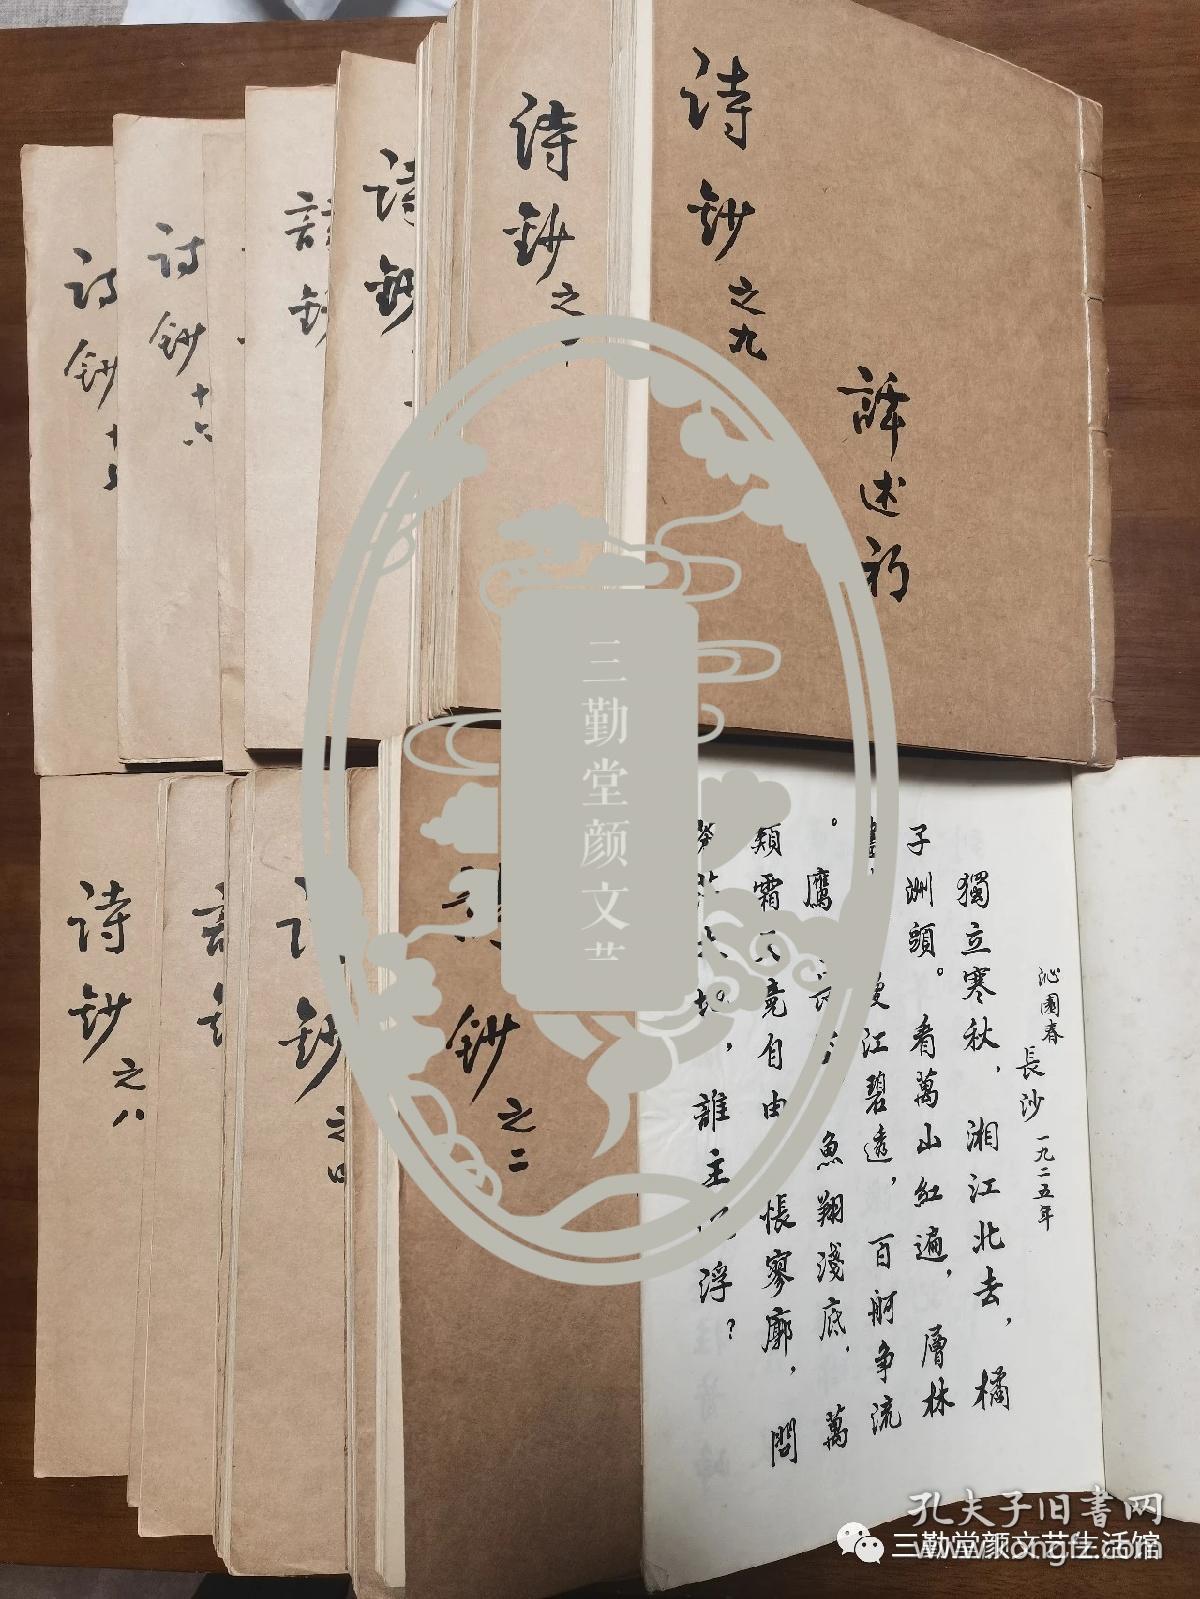 诗钞之九
譯述初
诗钞之
诗钞
钞
诗钞十六
诗钞十
三勤堂颜文艺
诗钞之八
钞之
钞之二
沁園春 長沙 一九二五年
獨立寒秋，湘江北去，橘
子洲頭。看萬山紅遍，層林
江碧透，百舸争流
。鷹 魚翔淺底，萬
類霜天竟自由 悵寥廓，問
，誰主 浮？
孔夫子旧書网
www.kongfz.com
三勤堂颜文艺生活馆